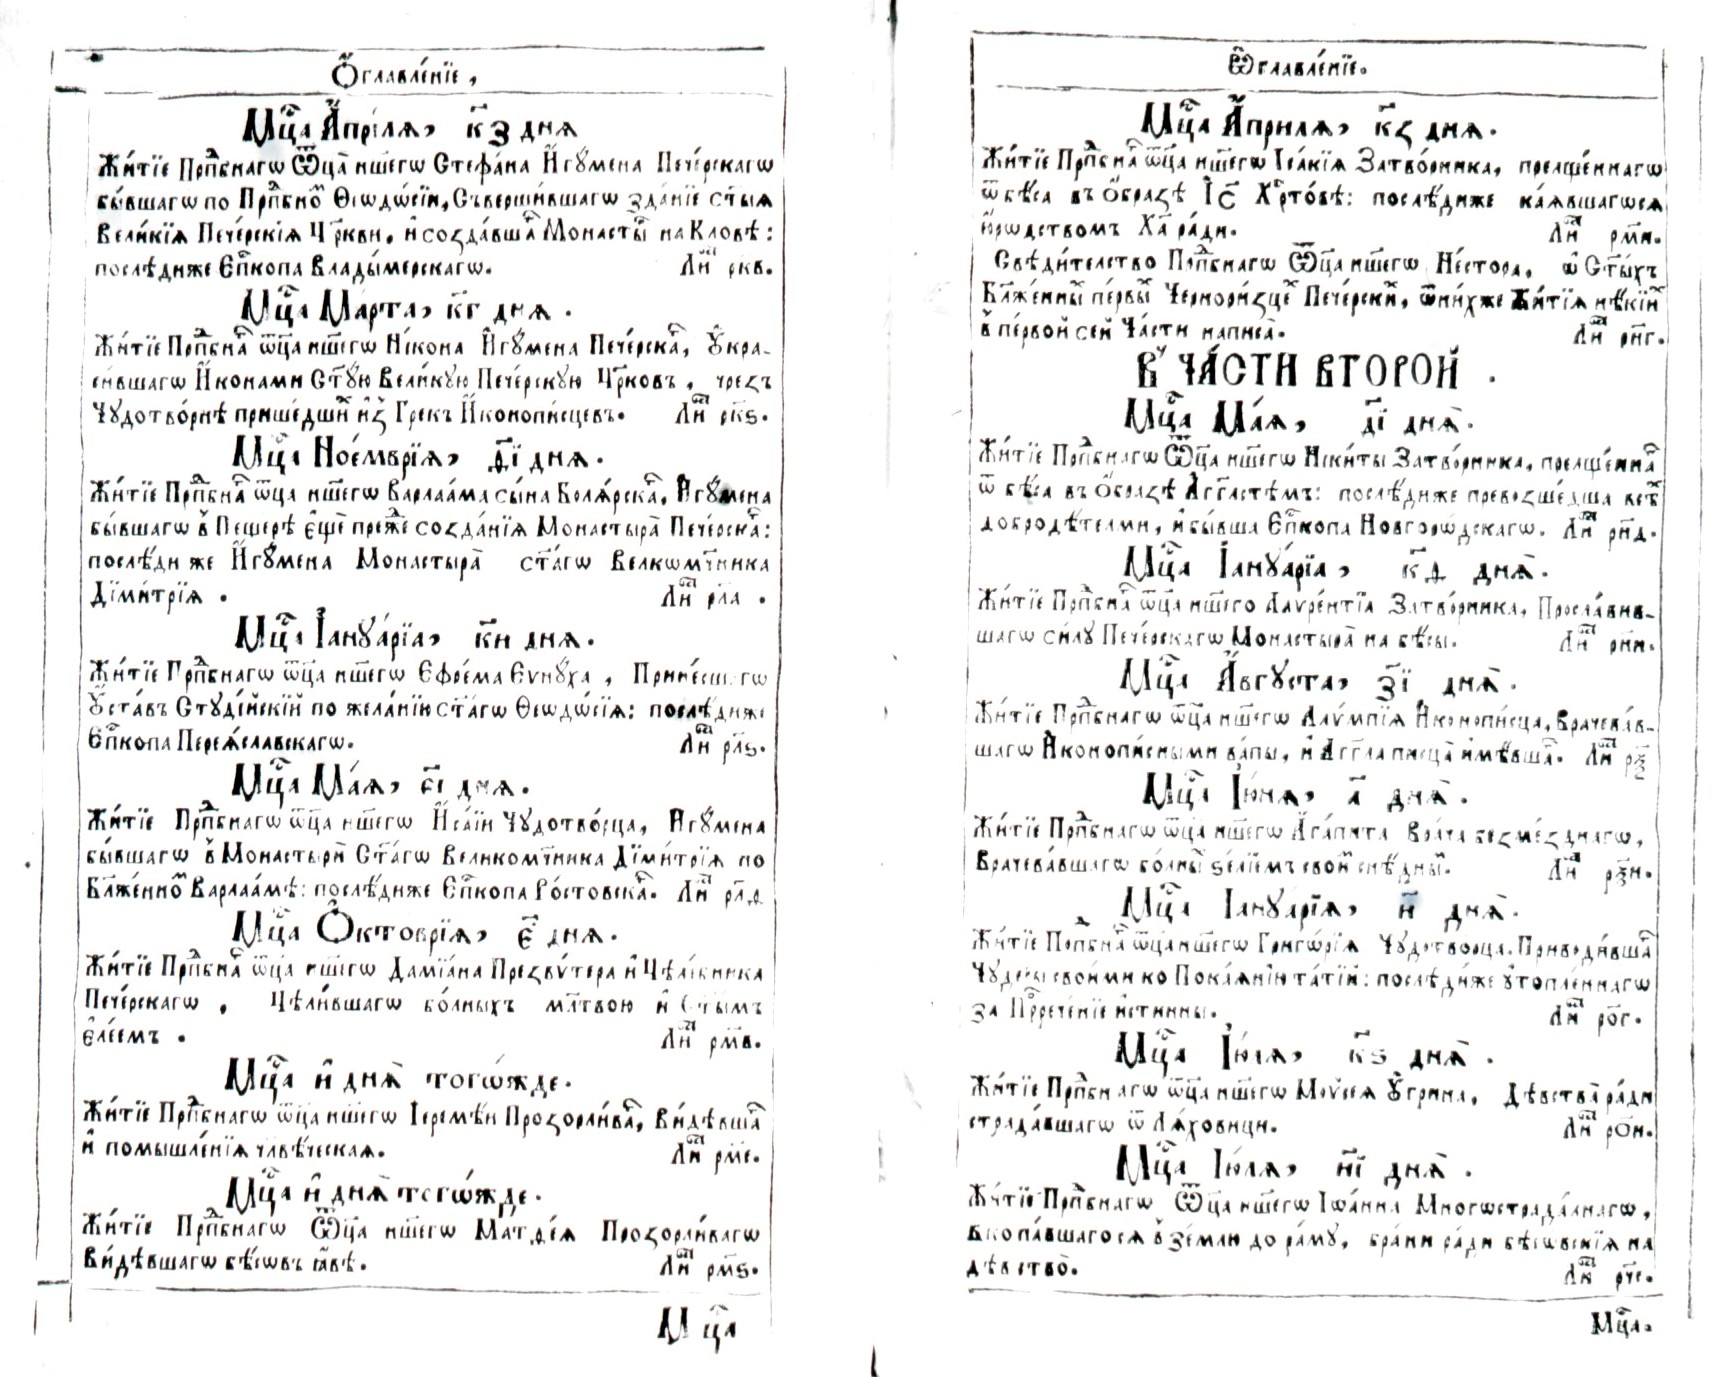 Ѻ҆главле́нїе,
Мц҃а А҆прі́лѧ, к҃з днѧ
Жи́тїе Прⷣпбнагѡ Ѿц҃а нш҃егѡ Стефа́на И҆гꙋ́мена Пече́рскагѡ
бы́вшагѡ по Прⷣпбно Ѳеѡдѡ́сїи, Съверши́вшагѡ зда́нїе ст҃ы́ѧ
Вели́кїѧ Пече́рскїѧ Цр҃кви, и҆ созда́вша Монасты на Кловѣ:
послѣ́диже Е҆пⷭ҇копа Влады́мерскагѡ. Ли рк҃в.
Мц҃а Ма́рта, к҃г днѧ.
Жи́тїе Прⷣпбна ѿц҃а нш҃егѡ Ні́кона И҆гꙋ́мена Пече́рска, Оу҆кра-
си́вшагѡ И҆конами Ст҃ꙋ́ю Вели́кꙋю Пече́рскꙋю Цр҃ковъ, чрезъ
Чꙋдотво́рнѣ прише́дши и҆з̾ Грекъ И҆конопи́сцевъ. Ли рк҃ѕ.
Мц҃а Ное́мврїѧ, д҃і днѧ.
Жи́тїе Прⷣпбна ѿц҃а нш҃егѡ Варлаа́ма сы́на Болѧ́рска, И҆гꙋ́мена
бы́вшагѡ в̾ Пещерѣ е҆щѐ пре́же созда́нїѧ Монастырѧ̀ Пече́рска:
послѣ́ди же И҆гꙋ́мена Монастырѧ̀ ст҃а́гѡ Великомч҃ника
Дїми́трїѧ. Ли рл҃а.
Мц҃а І҆аннꙋа́рїа, к҃и днѧ.
Жи́тїе Прⷣпбнагѡ ѿц҃а нш҃егѡ Е҆фре́ма Е҆ѵнꙋ́ха, Прине́сшагѡ
Оу҆ста́въ Стꙋді́йскїй по жела́нїю ст҃а́гѡ Ѳеѡдѡ́сїѧ: послѣ́диже
Е҆пⷭ҇копа Переѧ́славскагѡ. Ли рл҃ѕ.
Мц҃а Ма́ѧ, е҃і днѧ.
Жи́тїе Прⷣпбнагѡ ѿц҃а нш҃егѡ И҆са́їи Чꙋдотво́рца, И҆гꙋ́мена
бы́вшагѡ в̾ Монастырѝ Ст҃а́гѡ Великомч҃ника Дїми́трїѧ по
Бл҃же́нно Варлаа́мѣ: послѣ́диже Е҆пⷭ҇копа Ро́стовска. Ли
Мц҃а Ѻ҆ктоврїѧ, е҃ днѧ.
Жи́тїе Прⷣпбна ѿц҃а нш҃егѡ Дамїа́на Презвѵ́тера и҆ Цѣле́бника
Пече́рскагѡ, Цѣли́вшагѡ бо́лныхъ мл҃твою и҆ Ст҃ы́мъ
е҆ле́емъ. Ли рм҃в.
Мц҃а и҆ днѧ̀ тогѡ́жде.
Жи́тїе Прⷣпбнагѡ ѿц҃а нш҃егѡ І҆еремѣ́и Прозорли́ва, Ви́дѣвша
и҆ помышле́нїѧ чл҃вѣ́ческаѧ. Ли рм҃е.
Мц҃а и҆ днѧ̀ тогѡ́жде.
Жи́тїе Прⷣпбнагѡ Ѿц҃а нш҃егѡ Матѳе́ѧ Прозорли́вагѡ
Ви́дѣвшагѡ бѣ́сѡвъ ꙗ҆́вѣ. Ли рм҃ѕ.
Мц҃а
Ѡ҆главле́нїе.
Мц҃а А҆при́лѧ, к҃з днѧ.
Жи́тїе Прⷣпбна ѿц҃а нш҃егѡ І҆са́кїѧ Затво́рника, прелще́ннагѡ
ѿ бѣ́са въ ѻ҆́бразѣ І҆с҃ Хрⷭ҇то́вѣ: послѣ́диже ка́ѧвшагѡсѧ
ю҆́рѡдствомъ Хⷭ҇а ра́ди. Ли рм҃и.
Свѣди́телство Прⷣпбнагѡ Ѿц҃а нш҃егѡ Не́стора, ѡ҆ Ст҃ы́хъ
Бл҃же́нны пе́рвы Чернори́зце Пече́рски, ѿ ни́хже Жи́тїѧ нѣ́кїи
в̾ пе́рвой сей Ча́сти написа̀. Ли рн҃г.
В̾ ЧА́СТИ ВТОРОЙ.
Мц҃а Ма́ѧ, д҃і днѧ̀.
Жи́тїе Прⷣпбнагѡ Ѿц҃а нш҃егѡ Ники́ты Затво́рника, прелще́нна
ѿ бѣ́са въ ѻ҆́бразѣ А҆гг҃лстѣмъ: послѣ́диже превозше́дша все
добродѣ́телми, и҆ бы́вша Е҆пⷭ҇копа Новгорѡ́дскагѡ. Ли рн҃д.
Мц҃а І҆аннꙋа́рїа, к҃д днѧ̀.
Жи́тїе Прⷣпбна ѿц҃а нш҃его Лаѵре́нтїа Затво́рника, Просла́вив-
шагѡ си́лꙋ Пече́рскагѡ Монастырѧ̀ на бѣ́сы. Ли рн҃и.
Мц҃а А҆́вгꙋста, з҃і днѧ̀.
Жи́тїе Прⷣпбнагѡ ѿц҃а нш҃егѡ Алѵ́мпїѧ И҆конопи́сца, Врачева́в-
шагѡ И҆конопи́сными ва́пы, и҆ А҆гг҃ла писца̀ и҆мѣ́вша. Ли рѯ҃
Мц҃а І҆ю́нѧ, а҃ днѧ̀.
Жи́тїе Прⷣпбнагѡ ѿц҃а нш҃егѡ А҆га́пита Врача̀ безме́зднагѡ,
Врачева́вшагѡ бо́лны ѕе́лїемъ свои снѣ́дны. Ли рѯ҃и.
Мц҃а І҆аннꙋа́рїѧ, и҃ днѧ̀.
Жи́тїе Прⷣпбна ѿц҃а нш҃егѡ Григѡ́рїѧ Чꙋдотворца. Приводи́вша
Чꙋдесы̀ свои́ми ко Покаѧ́нїю та́тїй: послѣ́диже оу҆топле́ннагѡ
за Прⷪ҇рече́нїе и҆́стинны. Ли ро҃г.
Мц҃а І҆ю́лѧ, к҃ѕ днѧ̀.
Жи́тїе Прⷣпбнагѡ ѿц҃а нш҃егѡ Мѡѷсе́ѧ Оу҆́грина, Дѣ́вства ра́ди
страда́вшагѡ ѿ Лѧ́ховици. Ли ро҃и.
Мц҃а І҆ю́лѧ, и҃і днѧ̀.
Жи́тїе Прⷣпбнагѡ Ѿц҃а нш҃егѡ І҆ѡа́нна Многѡстрада́лнагѡ,
Вкопа́вшагосѧ в̾ зе́млю до ра́мꙋ, бра́ни ра́ди бѣсѡ́вскїѧ на
дѣ́вство̀. Ли рч҃е.
Мц҃а.